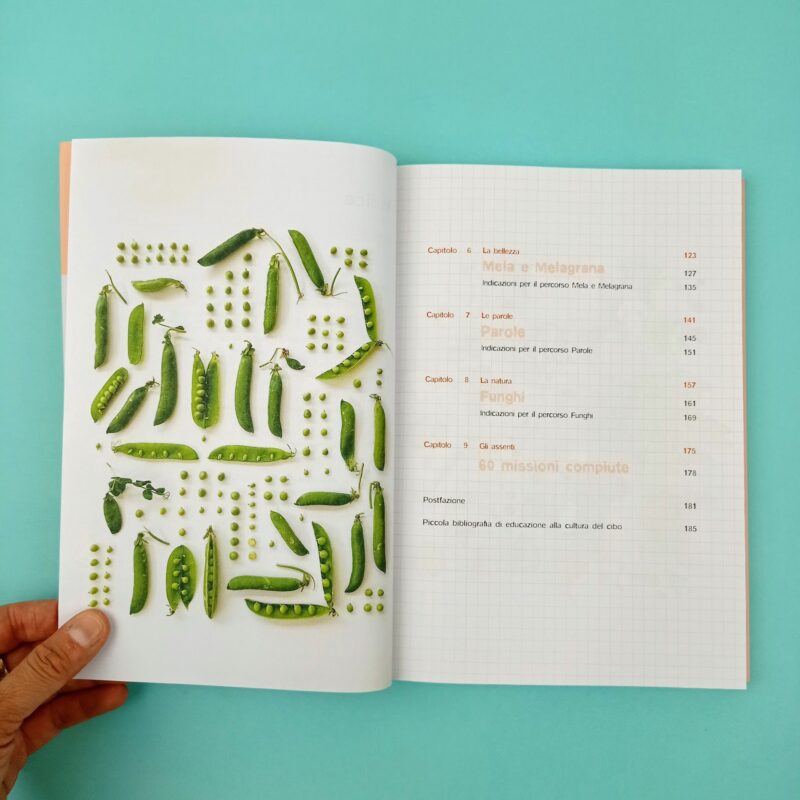 Capitolo 6 La bellezza 123
Mela e Melagrana 127
Indicazioni per il percorso Mela e Melagrana 135
Capitolo 7 Le parole 141
Parole 145
Indicazioni per il percorso Parole 151
Capitolo 8 La natura 157
Funghi 161
Indicazioni per il percorso Funghi 169
Capitolo 9 Gli assenti 175
60 missioni compiute 178
Postfazione 181
Piccola bibliografia di educazione alla cultura del cibo 185